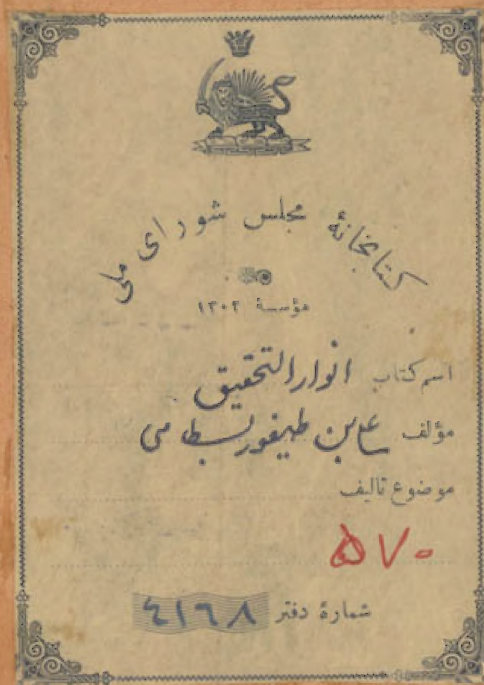 کتابخانهٔ مجلس شورای ملی
مؤسسهٔ ۱۳۰۲
اسم کتاب انوار التحقیق
مؤلف علی بن طیفور بسطامی
موضوع تالیف
۵۷۰
شمارهٔ دفتر ٤١٦٨